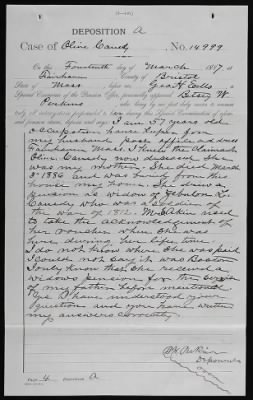 DEPOSITION A
Case of Olive Canedy, No. 14999
On this Fourteenth day of March, 1887, at
Fairhaven, County of Bristol
State of Mass, before me, Geo H Eells, a
Special Examiner of the Pension Office, personally appeared Betsey W.
Perkins, who, being by me first duly sworn to answer
truly all interrogatories propounded to her during this Special Examination of aforesaid
claim, deposes and says: I am 57 years old
occupation house keeper for
my husband post office address
Fairhaven Mass.
Olive Canedy now deceased she
was my mother. She died March
3d 1886 and was buried from this
house my home. She drew a
pension as widow of
Canedy who was a soldier of
the war of 1812. Mr Akin used
to take the acknowledgement of
her voucher when she was
here during her life time.
I do not know where she was paid
I could not say it was Boston
I only know that she received a
widows pension for the
of my father before mentioned
Yes I have understood your
question and you have written
my answers correctly.
Deponent
PAGE 4 DEPOSITION A